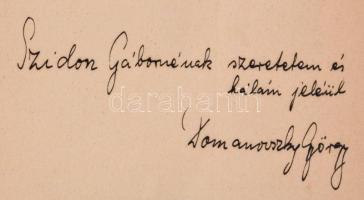 Szidon Gáborнénak szeretetem és
hálám jeléül
darabanth
Domanovszky György